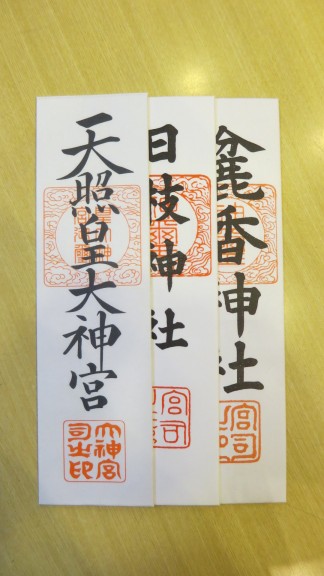 麁香神社
宮司
日枝神社
宮司
天照皇大神宮
大神宮
司之印